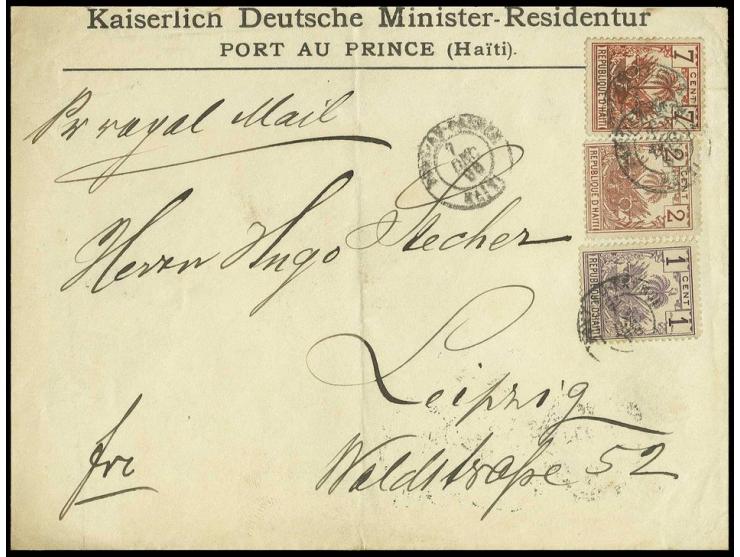 Kaiserlich Deutsche Minister-Residentur
PORT AU PRINCE (Haïti).
Pr royal Mail
7 CENT 7
REPUBLIQUE D'HAITI
2 CENT 2
REPUBLIQUE D'HAITI
1 CENT 1
REPUBLIQUE D'HAITI
PORT-AU-PRINCE
7
DEC
HAITI
Herrn Hugo Stecher
Leipzig
Waldstraße 52
fri